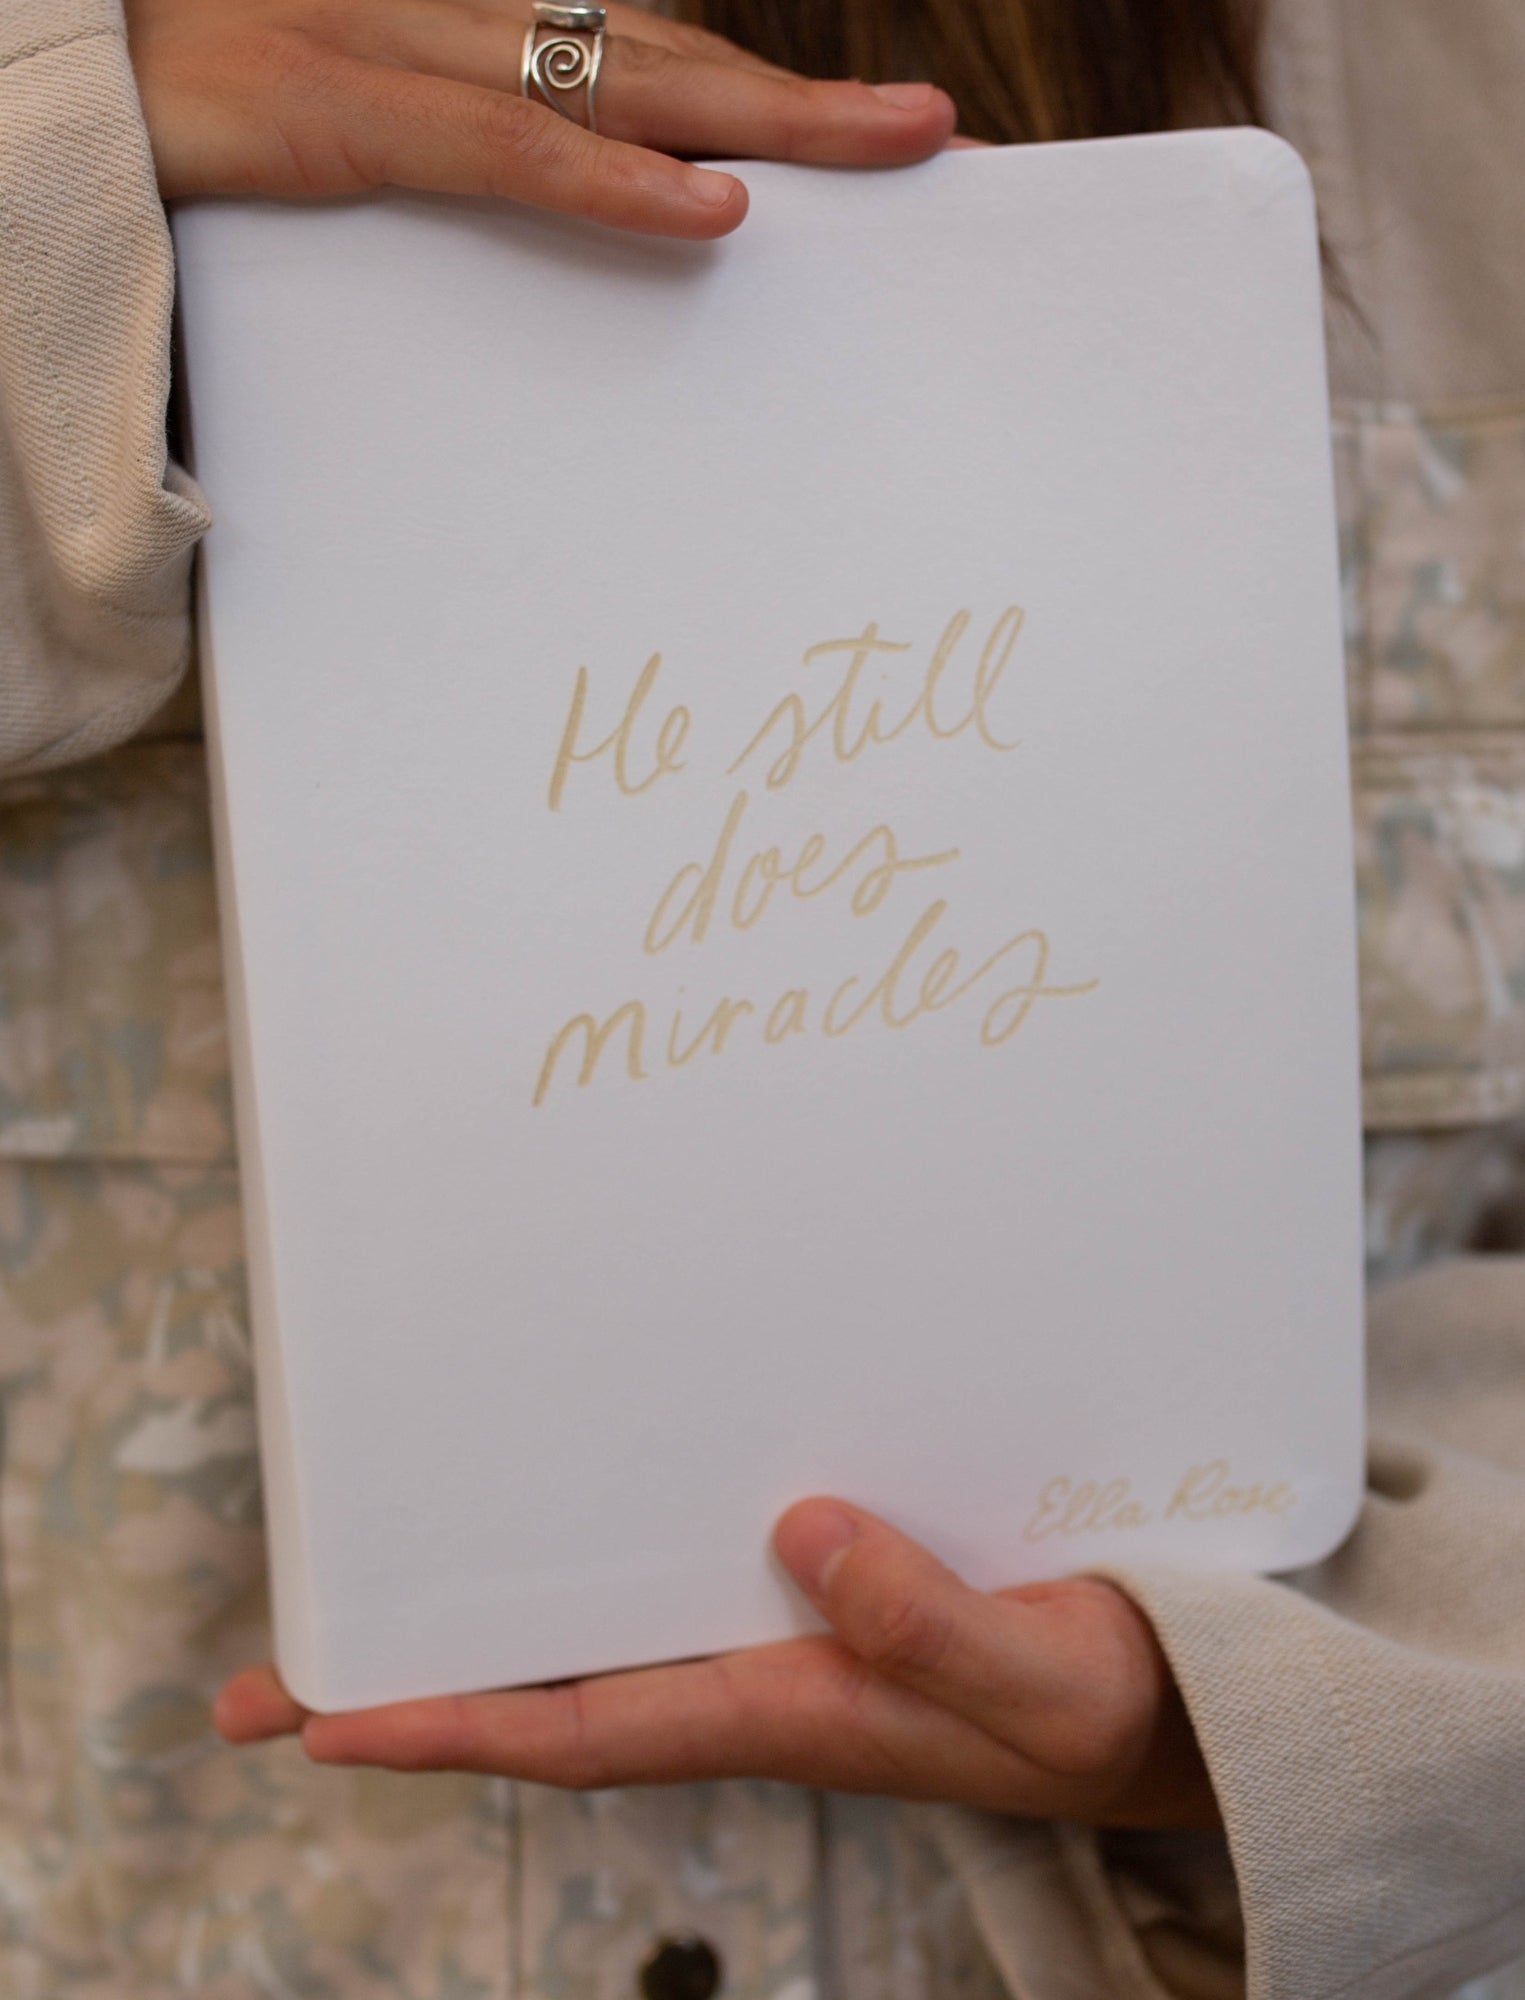 He still
does
miracles
Ella Rose